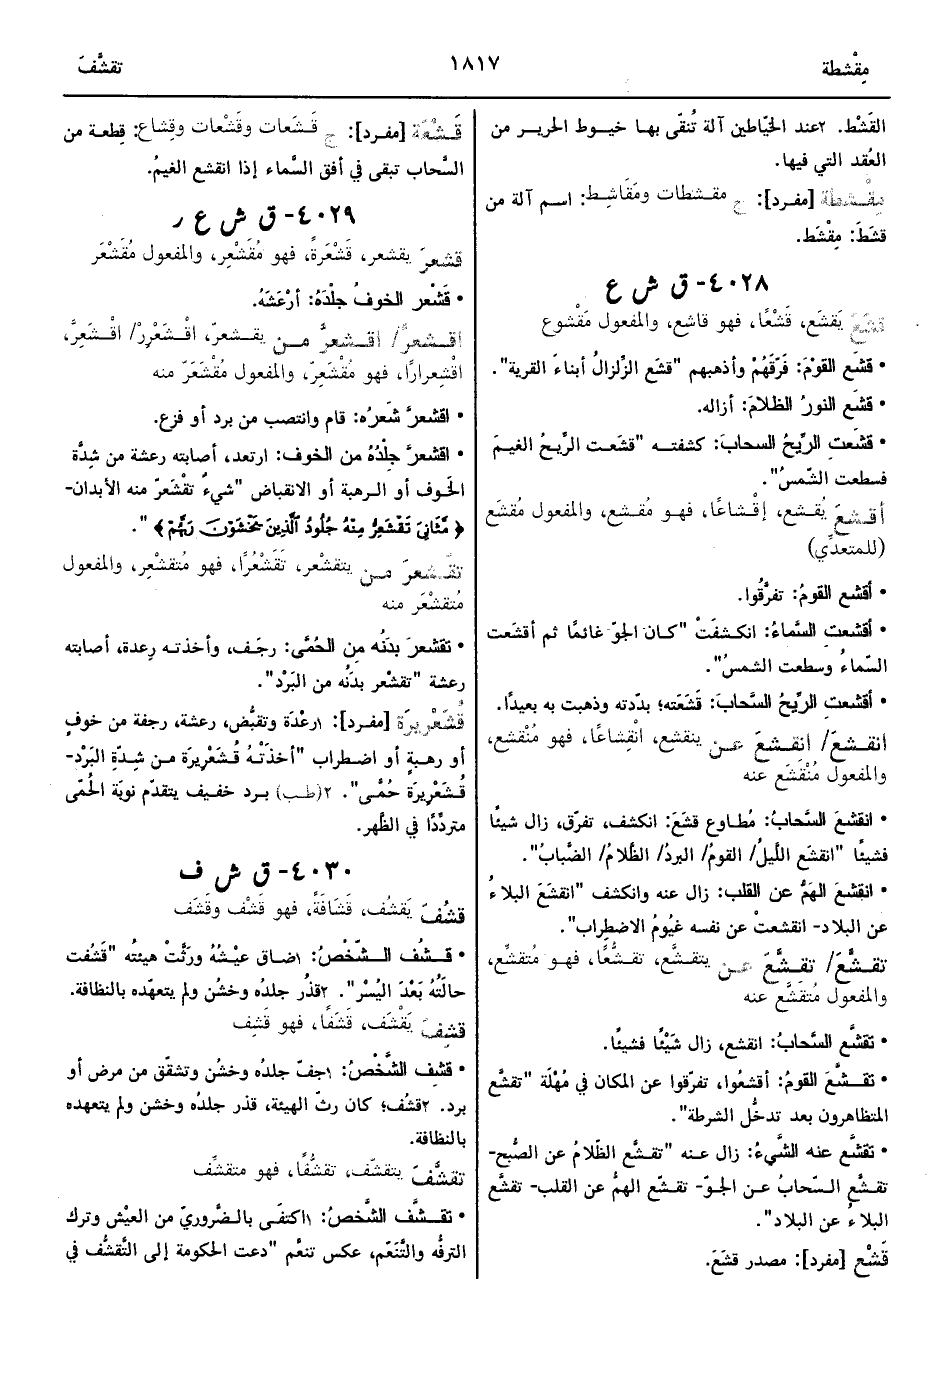 مِقْشطة
١٨١٧
تقشَّفَ
القَشْط. ٢عند الخيّاطين آلة تُنقّى بها خيوط الحرير من
العُقد التي فيها.
مِقْشطة [مفرد]: ج مقشطات ومَقَاشِط: اسم آلة من
قشَطَ: مِقْشَط.
٤٠٢٨- ق ش ع
قشَعَ يَقشَع، قَشْعًا، فهو قاشِع، والمفعول مَقْشوع
• قشَع القوْمَ: فَرَّقَهُمْ وأذهبهم "قشَع الزِّلزالُ أبناءَ القرية".
• قشَع النورُ الظلامَ: أزاله.
• قشَعتِ الرِّيحُ السحابَ: كشفته "قشَعت الرِّيحُ الغيمَ
فسطعت الشّمسُ".
أقشعَ يُقشع، إقْشاعًا، فهو مُقشع، والمفعول مُقشَع
(للمتعدِّي)
• أقشع القومُ: تفرَّقُوا.
• أقشعت السَّماءُ: انكشفَتْ "كان الجوّ غائمًا ثم أقشعَت
السّماءُ وسطعت الشمسُ".
• أقشعت الرِّيحُ السَّحابَ: قَشَعَته؛ بدّدته وذهبت به بعيدًا.
انقشعَ/ انقشعَ عن ينقشع، انقِشاعًا، فهو مُنْقشع،
والمفعول مُنْقَشَع عنه
• انقشعَ السَّحابُ: مُطاوع قشَعَ: انكشف، تفرّق، زال شيئًا
فشيئًا "انقشع اللّيلُ/ القومُ/ البردُ/ الظّلامُ/ الضَّبابُ".
• انقشعَ الهَمُّ عن القلب: زال عنه وانكشف "انقشعَ البلاءُ
عن البلاد- انقشعتْ عن نفسه غيُومُ الاضطراب".
تقشَّعَ/ تقشَّعَ عن يتقشَّع، تقشُّعًا، فهو مُتقشِّع،
والمفعول مُتقشَّع عنه
• تقشَّع السَّحابُ: انقشع، زال شَيْئًا فشيئًا.
• تقشَّعَ القومُ: أقشعُوا، تفرّقوا عن المكان في مُهْلَة "تقشَّع
المتظاهرون بعد تدخُّل الشرطة".
• تقشَّع عنه الشَّيءُ: زال عنه "تقشَّع الظّلامُ عن الصُّبح-
تقشَّع السّحابُ عن الجوّ- تقشّع الهمُّ عن القلب- تقشَّع
البلاءُ عن البلاد".
قَشْع [مفرد]: مصدر قشَعَ.
قَشْعَة [مفرد]: ج قَشعَات وقَشْعات وقِشاع: قطعة من
السَّحاب تبقى في أفق السَّماء إذا انقشع الغيمُ.
٤٠٢٩- ق ش ع ر
قشعرَ يقشعر، قَشْعَرةً، فهو مُقَشْعِر، والمفعول مُقَشْعَر
• قَشْعر الخوفُ جلْدَهُ: أرْعَشَهُ.
اقشعرَّ/ اقشعرَّ من يقشعرّ، اقْشَعْرِرْ/ اقْشَعِرَّ،
اقْشِعرارًا، فهو مُقْشَعِرّ، والمفعول مُقْشَعَرّ منه
• اقشعرَّ شَعرُه: قام وانتصب من برد أو فزع.
• اقشعرَّ جِلْدُهُ من الخوف: ارتعد، أصابته رعشة من شِدَّة
الخوف أو الرهبة أو الانقباض "شيءٌ تقْشَعرّ منه الأبدان-
﴿مَّثَانِيَ تَقْشَعِرُّ مِنْهُ جُلُودُ الَّذِينَ يَخْشَوْنَ رَبَّهُمْ﴾".
تقشعرَ من يتقشعر، تَقَشْعُرًا، فهو مُتقشعِر، والمفعول
مُتقشعَر منه
• تقشعرَ بدَنُه من الحُمَّى: رجَف، وأخذته رِعدة، أصابته
رعشة "تقشْعر بدَنُه من البَرْد".
قُشَعْرِيرَة [مفرد]: ١رعْدَة وتقبُّض، رعشة، رجفة من خوفٍ
أو رهبةٍ أو اضطراب "أخذَتْهُ قُشَعْرِيرَة من شِدّةِ البَرْد-
قُشَعْرِيرَة حُمَّى". ٢(طب) برد خفيف يتقدّم نوبَة الحُمّى
متردِّدًا في الظّهر.
٤٠٣٠- ق ش ف
قشُفَ يَقشُف، قَشَافَةً، فهو قَشْف وقَشَف
• قشُف الشّخْصُ: ١ضاق عيْشُهُ ورَثَّتْ هيئتُه "قَشُفت
حالَتُهُ بَعْدَ اليُسْر". ٢قذُر جلدُه وخشُن ولم يتعهّده بالنظافة.
قشِفَ يَقْشَف، قَشَفًا، فهو قَشِف
• قشِف الشَّخْصُ: ١جفّ جلدُه وخشُن وتشقّق من مرض أو
برد. ٢قشُف؛ كان رثّ الهيئة، قذر جلدُه وخشن ولم يتعهده
بالنظافة.
تقشَّفَ يتقشّف، تقشُّفًا، فهو متقشِّف
• تقشَّف الشّخصُ: ١اكتفَى بالضَّروريّ من العيْش وترك
الترفُّه والتَّنَعّم، عكس تنعَّم "دعت الحكومة إلى التَّقشُّف في